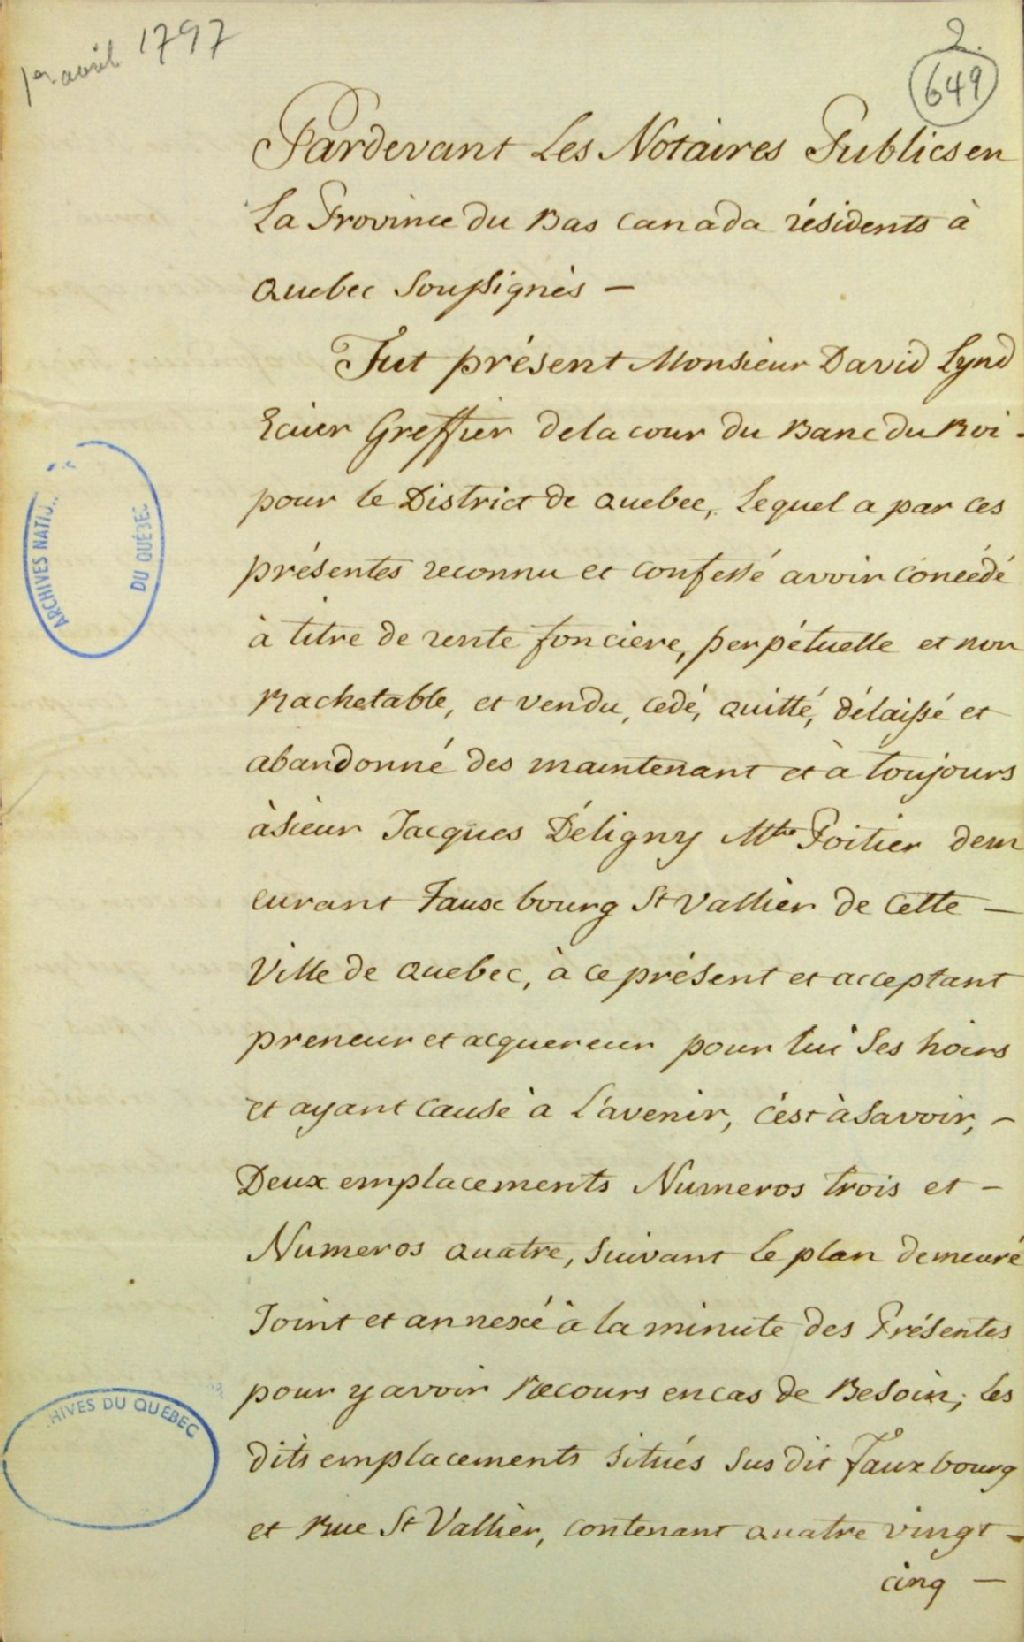 1er avril 1797
2.
649
Pardevant Les Notaires Publics en
La Province du Bas Canada résidents à
Quebec Soussignés —
Fut présent Monsieur David Lynd
Ecuier Greffier de la cour du Banc du Roi -
pour le District de Quebec, Lequel a par ces
présentes reconnu et confessé avoir concédé
à titre de rente fonciere, perpétuelle et non
Rachetable, et vendu, cedé, quitté, délaissé et
abandonné des maintenant et à toujours
à Sieur Jacques Déligny Mtre Poitier dem
eurant Fauxbourg St Vallier de Cette —
Ville de Quebec, à ce présent et acceptant
preneur et acquereur pour lui Ses hoirs
et ayant Cause à L'avenir, c'ést à Savoir, -
Deux emplacements Numeros trois et -
Numeros quatre, Suivant le plan demeuré
Joint et annexé à la minute des Présentes
pour y avoir Recours en cas de Besoin; les
dits emplacements Situés Susdit Fauxbourg
et Rue St Vallier, contenant quatre vingt -
cinq —
ARCHIVES NATIO
DU QUÉBEC
HIVES DU QUÉBEC